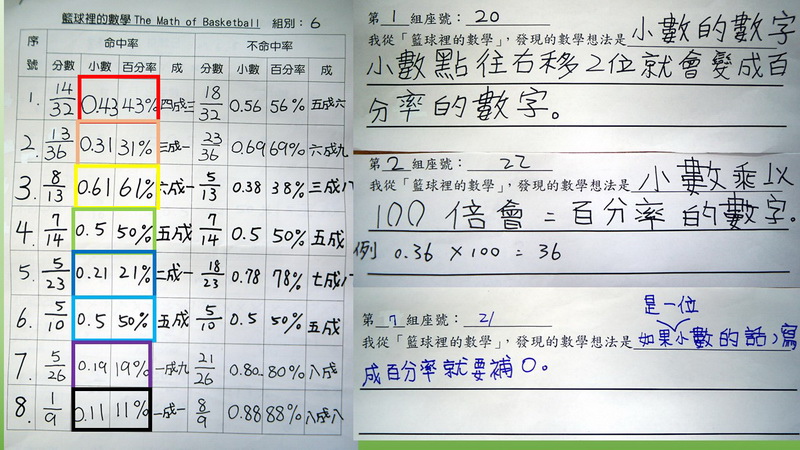 籃球裡的數學 The Math of Basketball 組別：6
序號 命中率 不命中率
分數 小數 百分率 成 分數 小數 百分率 成
1. 14/32 0.43 43% 四成三 18/32 0.56 56% 五成六
2. 13/36 0.31 31% 三成一 23/36 0.69 69% 六成九
3. 8/13 0.61 61% 六成一 5/13 0.38 38% 三成八
4. 7/14 0.5 50% 五成 7/14 0.5 50% 五成
5. 5/23 0.21 21% 二成一 18/23 0.78 78% 七成八
6. 5/10 0.5 50% 五成 5/10 0.5 50% 五成
7. 5/26 0.19 19% 一成九 21/26 0.80 80% 八成
8. 1/9 0.11 11% 一成一 8/9 0.88 88% 八成八
第 1 組座號：20
我從「籃球裡的數學」，發現的數學想法是 小數的數字
小數點往右移2位就會變成百
分率的數字。
第 2 組座號：22
我從「籃球裡的數學」，發現的數學想法是 小數乘以
100倍會=百分率的數字。
例 0.36 × 100 = 36
第 7 組座號：21
是一位
我從「籃球裡的數學」，發現的數學想法是 如果小數的話，寫
成百分率就要補0。